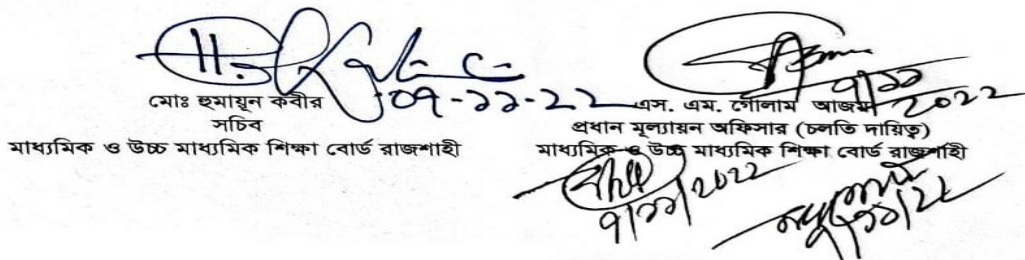 ০৭-১১-২২
মোঃ হুমায়ূন কবীর
সচিব
মাধ্যমিক ও উচ্চ মাধ্যমিক শিক্ষা বোর্ড রাজশাহী
৭/১১/২০২২
এস. এম. গোলাম আজম
প্রধান মূল্যায়ন অফিসার (চলতি দায়িত্ব)
মাধ্যমিক ও উচ্চ মাধ্যমিক শিক্ষা বোর্ড রাজশাহী
৭/১১/২০২২